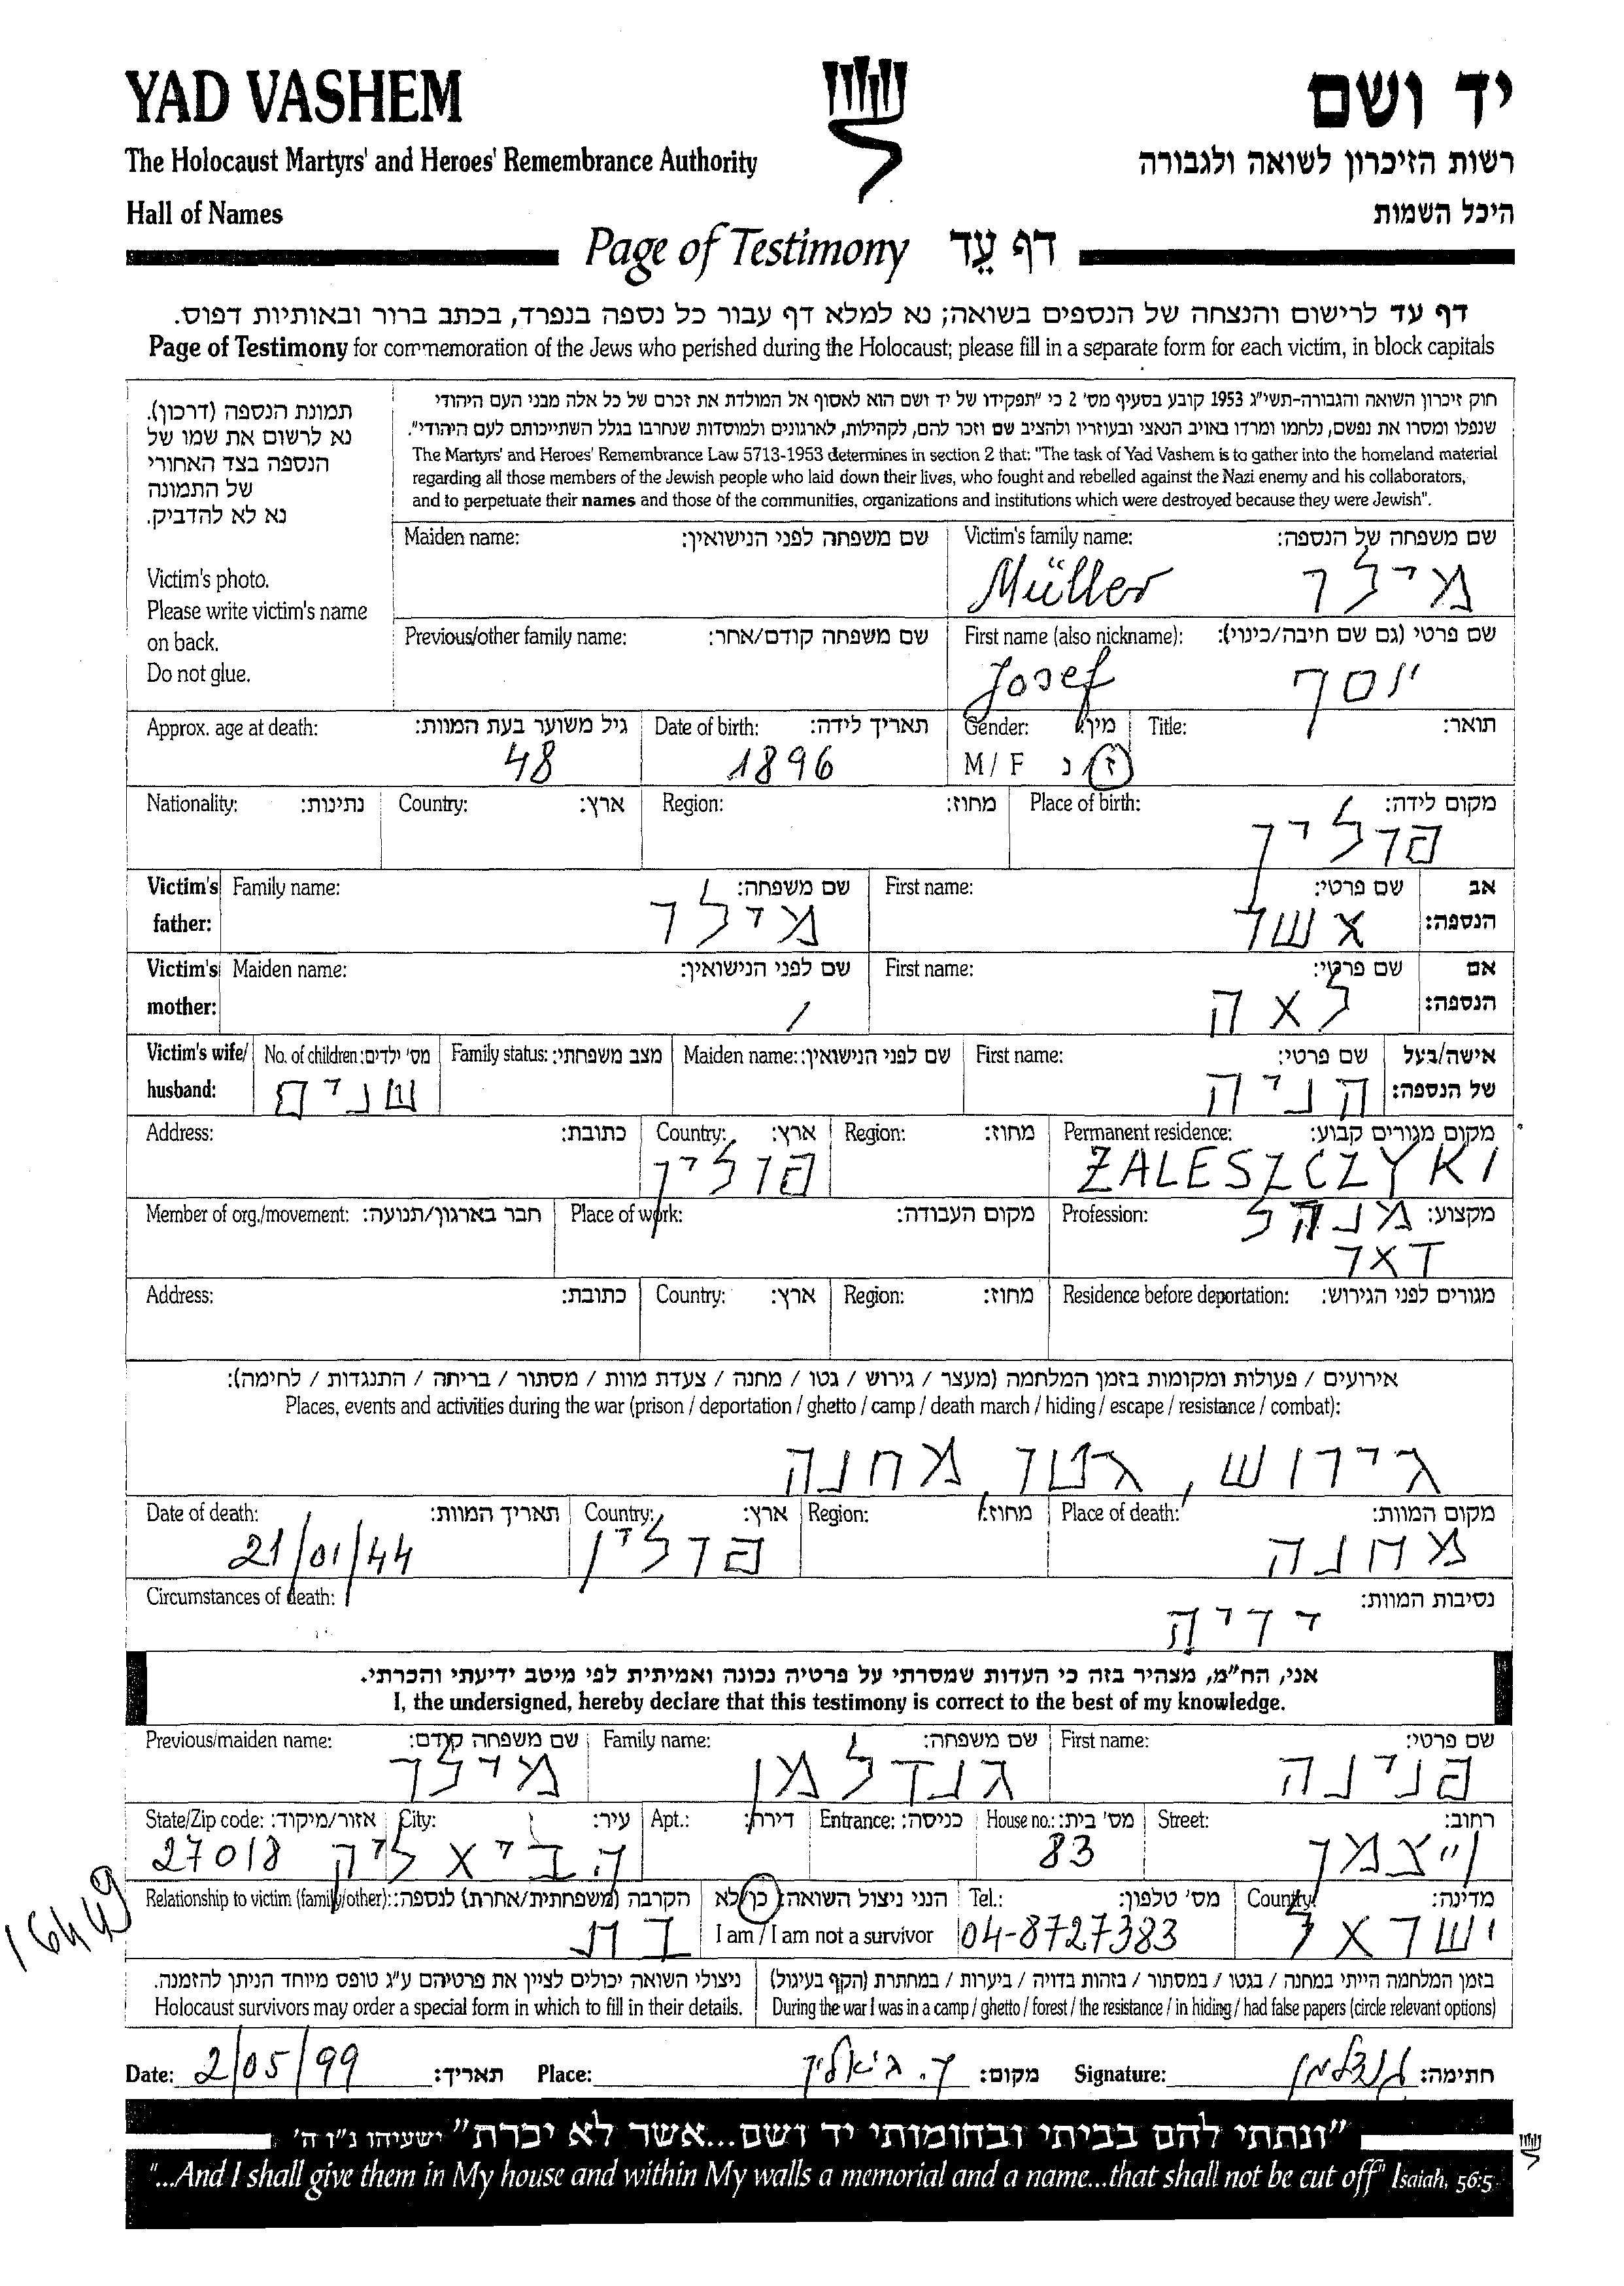 YAD VASHEM
יד ושם
The Holocaust Martyrs' and Heroes' Remembrance Authority
רשות הזיכרון לשואה ולגבורה
Hall of Names
היכל השמות
Page of Testimony דף עֵד
דף עד לרישום והנצחה של הנספים בשואה; נא למלא דף עבור כל נספה בנפרד, בכתב ברור ובאותיות דפוס.
Page of Testimony for commemoration of the Jews who perished during the Holocaust; please fill in a separate form for each victim, in block capitals
תמונת הנספה (דרכון).
נא לרשום את שמו של
הנספה בצד האחורי
של התמונה
נא לא להדביק.
Victim's photo.
Please write victim's name
on back.
Do not glue.
חוק זיכרון השואה והגבורה-תשי"ג 1953 קובע בסעיף מס' 2 כי "תפקידו של יד ושם הוא לאסוף אל המולדת את זכרם של כל אלה מבני העם היהודי
שנפלו ומסרו את נפשם, נלחמו ומרדו באויב הנאצי ובעוזריו ולהציב שם וזכר להם, לקהילות, לארגונים ולמוסדות שנחרבו בגלל השתייכותם לעם היהודי".
The Martyrs' and Heroes' Remembrance Law 5713-1953 determines in section 2 that: "The task of Yad Vashem is to gather into the homeland material
regarding all those members of the Jewish people who laid down their lives, who fought and rebelled against the Nazi enemy and his collaborators,
and to perpetuate their names and those of the communities, organizations and institutions which were destroyed because they were Jewish".
Maiden name: שם משפחה לפני הנישואין:
Victim's family name: שם משפחה של הנספה:
Müller מילר
Previous/other family name: שם משפחה קודם/אחר:
First name (also nickname): שם פרטי (גם שם חיבה/כינוי):
Josef יוסף
Approx. age at death: גיל משוער בעת המוות:
48
Date of birth: תאריך לידה:
1896
Gender: מין:
M / F ז/נ
Title: תואר:
Nationality: נתינות:
Country: ארץ:
Region: מחוז:
Place of birth: מקום לידה:
פולין
Victim's father: אב הנספה:
Family name: שם משפחה:
מילר
First name: שם פרטי:
אשר
Victim's mother: אם הנספה:
Maiden name: שם לפני הנישואין:
/
First name: שם פרטי:
לאה
Victim's wife/ husband: אישה/בעל של הנספה:
No. of children: מס' ילדים:
שנים
Family status: מצב משפחתי:
Maiden name: שם לפני הנישואין:
First name: שם פרטי:
הניה
Address: כתובת:
Country: ארץ:
פולין
Region: מחוז:
Permanent residence: מקום מגורים קבוע:
ZALESZCZYKI
Member of org./movement: חבר בארגון/תנועה:
Place of work: מקום העבודה:
Profession: מקצוע:
מנהל
דאר
Address: כתובת:
Country: ארץ:
Region: מחוז:
Residence before deportation: מגורים לפני הגירוש:
אירועים / פעולות ומקומות בזמן המלחמה (מעצר / גירוש / גטו / מחנה / צעדת מוות / מסתור / בריחה / התנגדות / לחימה):
Places, events and activities during the war (prison / deportation / ghetto / camp / death march / hiding / escape / resistance / combat):
גירוש, גטו, מחנה
Date of death: תאריך המוות:
21/01/44
Country: ארץ:
פולין
Region: מחוז:
Place of death: מקום המוות:
מחנה
Circumstances of death: נסיבות המוות:
ירייה
אני, הח"מ, מצהיר בזה כי העדות שמסרתי על פרטיה נכונה ואמיתית לפי מיטב ידיעתי והכרתי.
I, the undersigned, hereby declare that this testimony is correct to the best of my knowledge.
Previous/maiden name: שם משפחה קודם:
מילר
Family name: שם משפחה:
גנדלמן
First name: שם פרטי:
פנינה
State/Zip code: אזור/מיקוד:
27018
City: עיר:
ק. ביאליק
Apt.: דירה:
Entrance: כניסה:
House no.: מס' בית:
83
Street: רחוב:
וייצמן
Relationship to victim (family/other): הקרבה (משפחתית/אחרת) לנספה:
בת
הנני ניצול השואה: כן/לא
I am / I am not a survivor
Tel.: מס' טלפון:
04-8727383
Country: מדינה:
ישראל
16449
ניצולי השואה יכולים לציין את פרטיהם ע"ג טופס מיוחד הניתן להזמנה.
Holocaust survivors may order a special form in which to fill in their details.
בזמן המלחמה הייתי במחנה / בגטו / במסתור / בזהות בדויה / ביערות / במחתרת (הקף בעיגול)
During the war I was in a camp / ghetto / forest / the resistance / in hiding / had false papers (circle relevant options)
Date: 2/05/99 תאריך: Place: ק. ביאליק מקום: Signature: גנדלמן חתימה:
"ונתתי להם בביתי ובחומותי יד ושם...אשר לא יכרת" ישעיהו נ"ו ה'
"...And I shall give them in My house and within My walls a memorial and a name...that shall not be cut off" Isaiah, 56:5